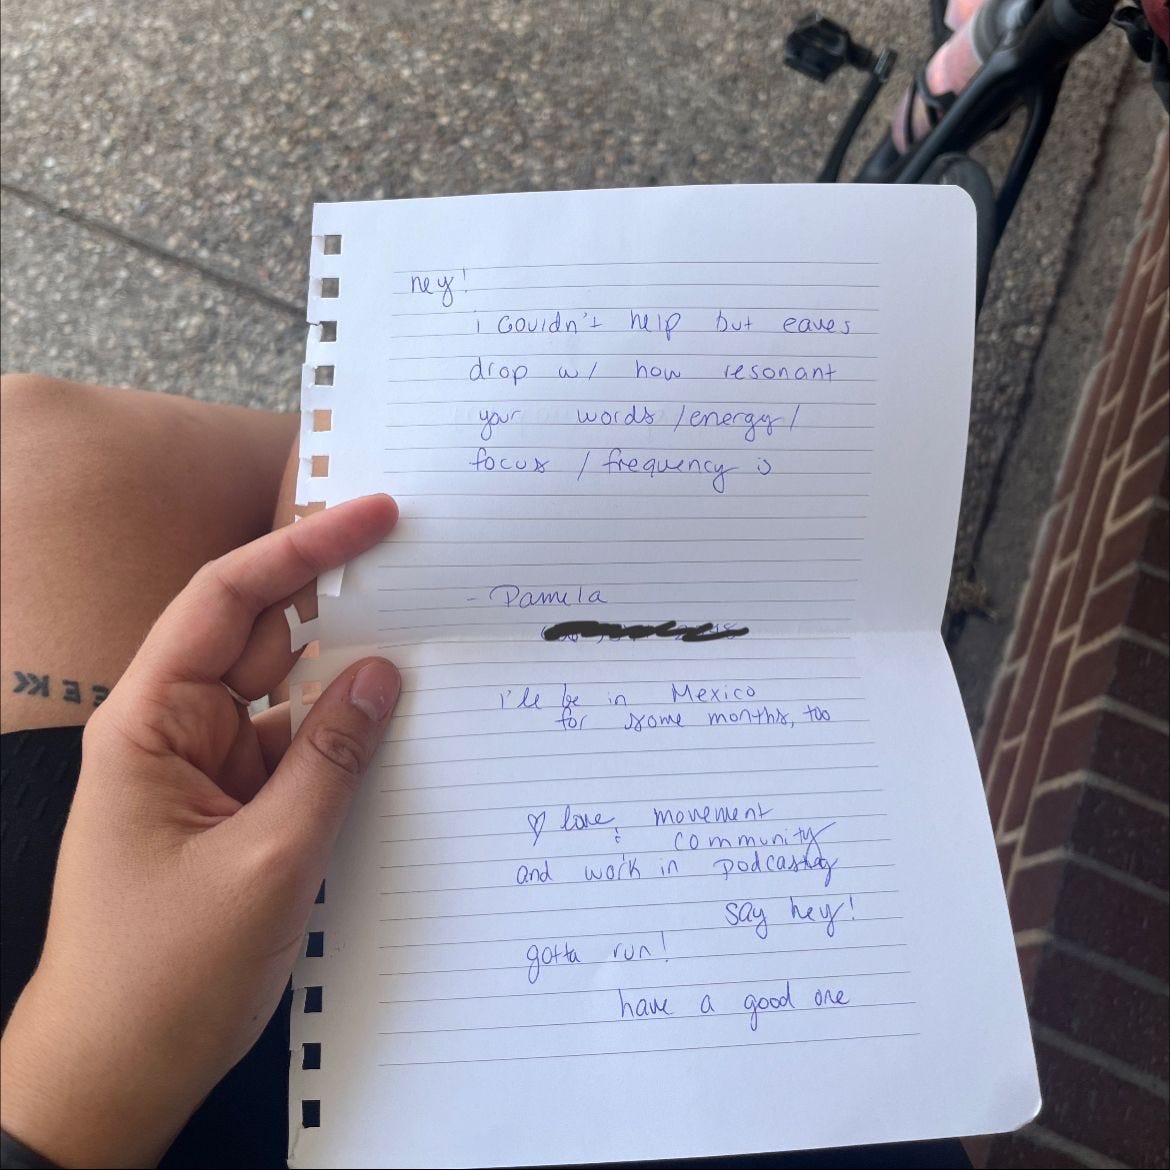 hey!
i couldn't help but eaves
drop w/ how resonant
your words / energy /
focus / frequency is
- Pamela
i'll be in Mexico
for some months, too
♡ love movement
& community
and work in podcasting
say hey!
gotta run!
have a good one